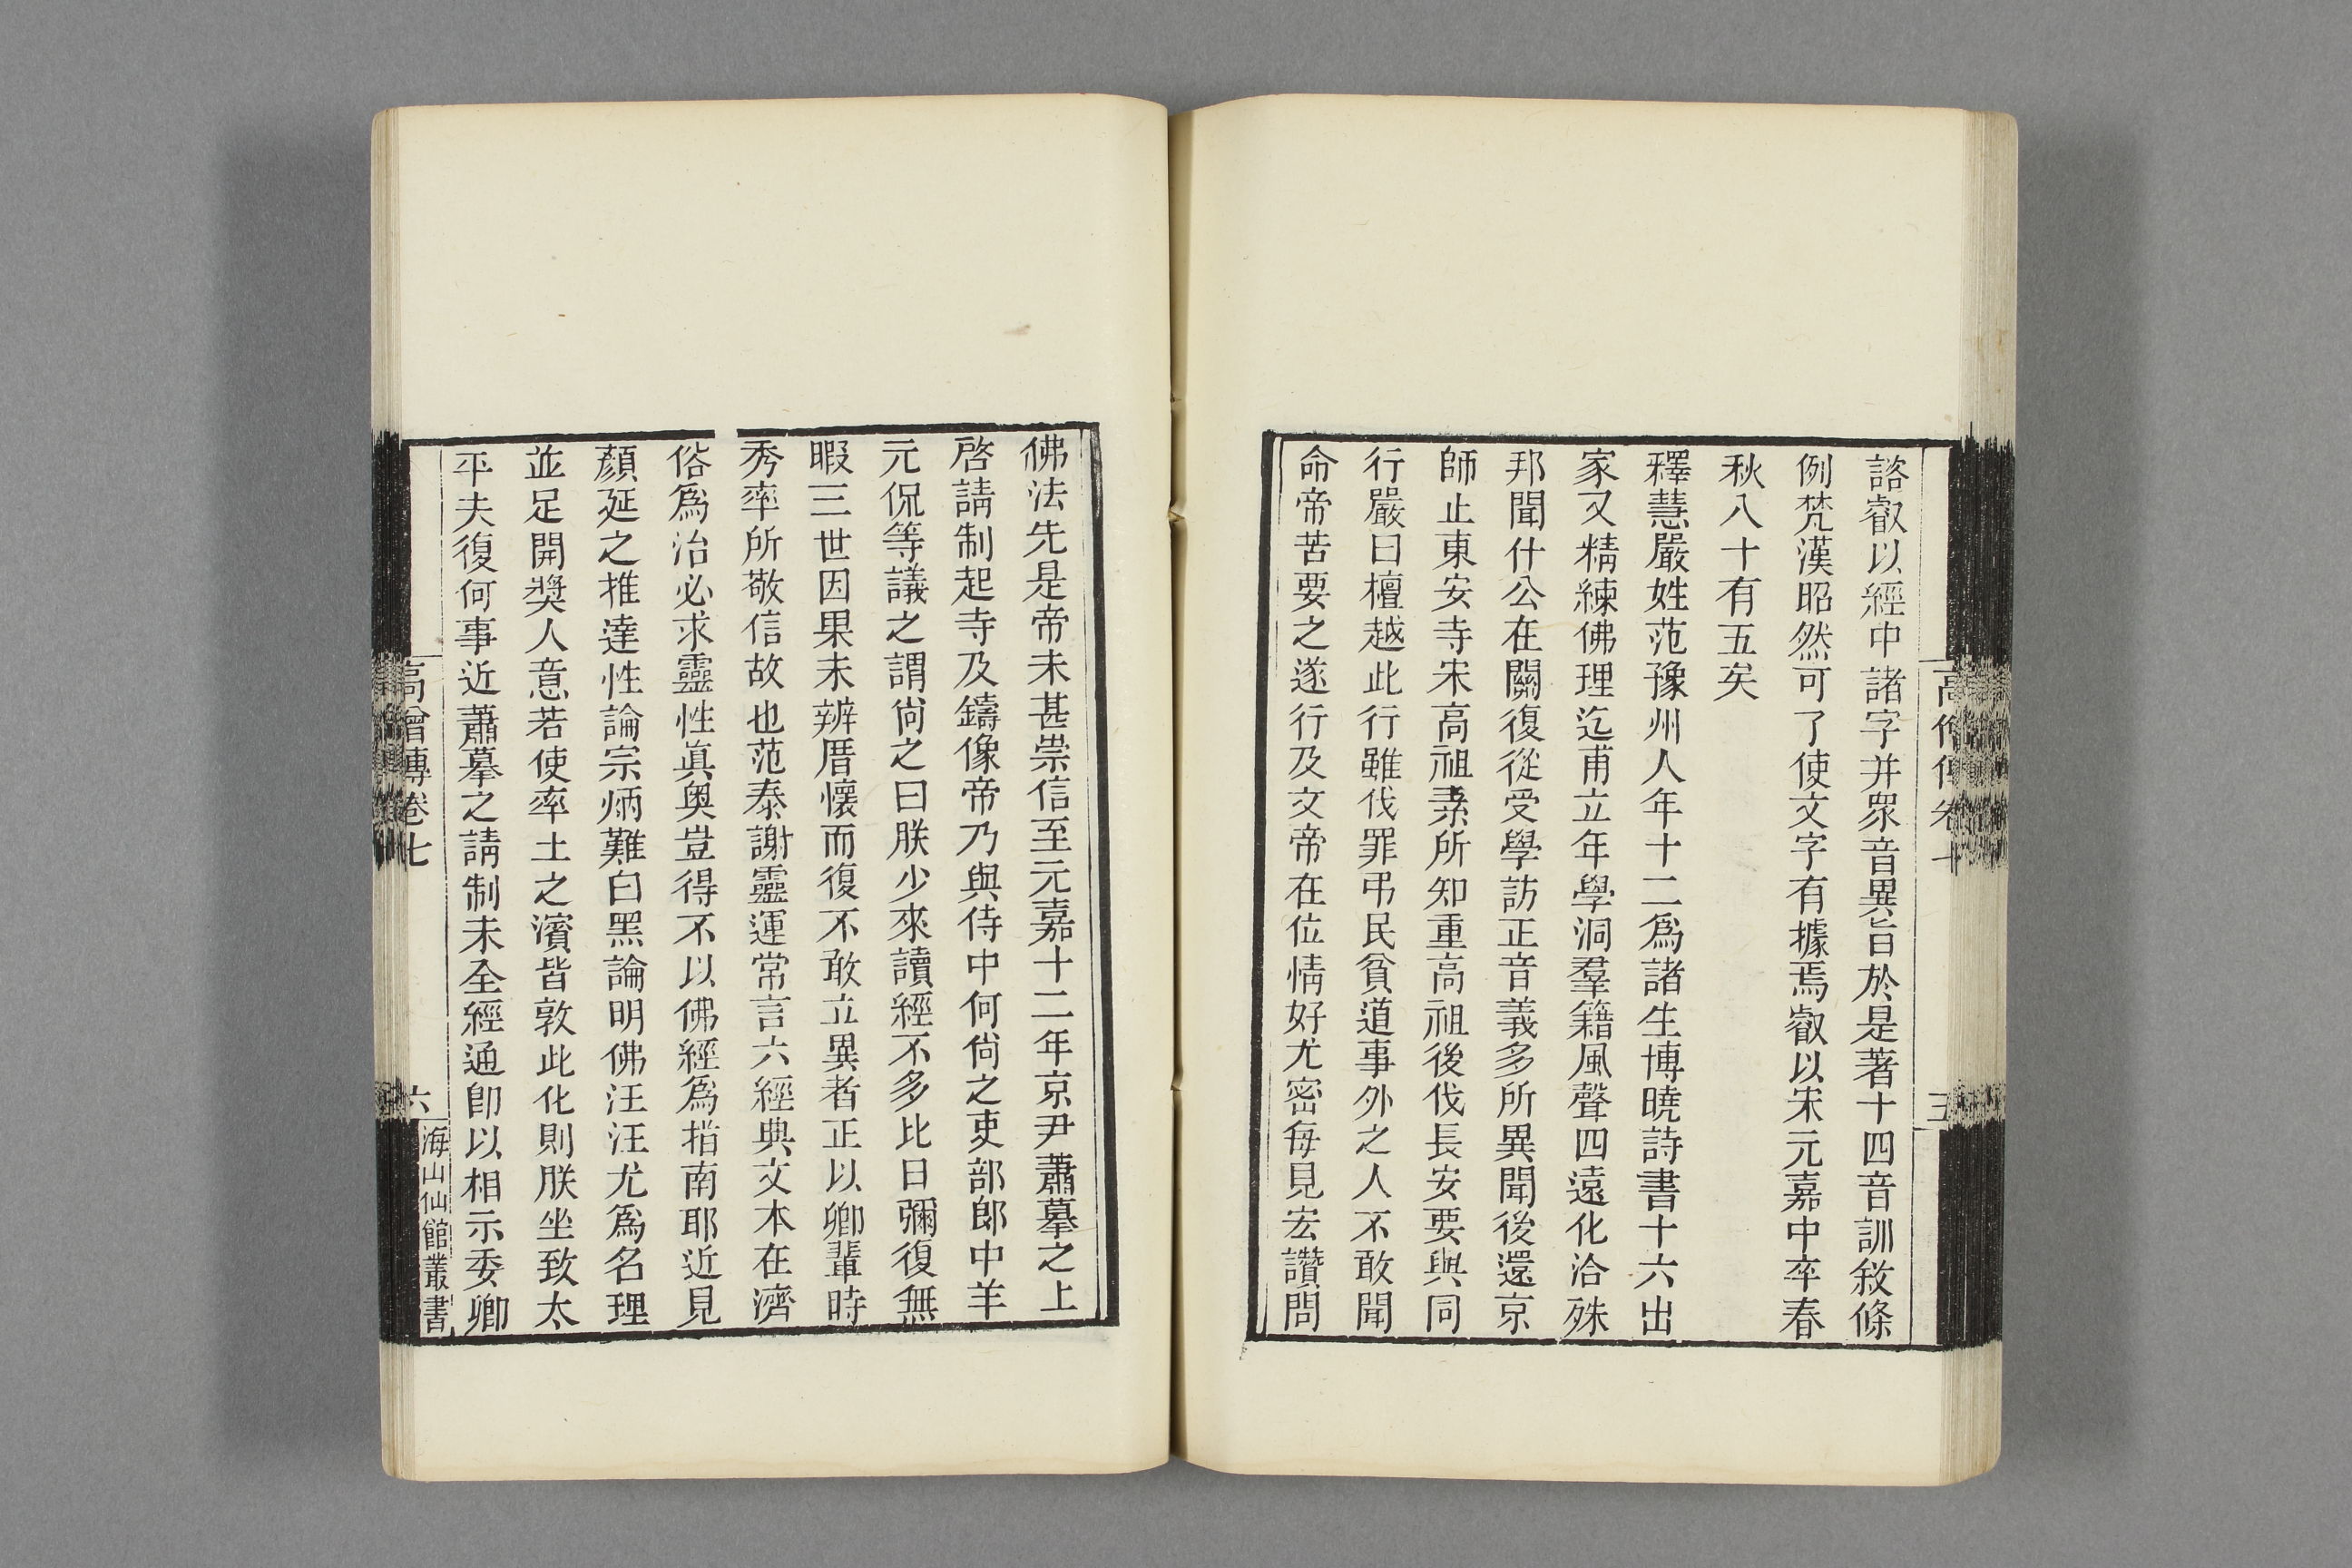 諮叡以經中諸字并眾音異旨於是著十四音訓敘條
例梵漢昭然可了使文字有據焉叡以宋元嘉中卒春
秋八十有五矣
釋慧嚴姓范豫州人年十二爲諸生博曉詩書十六出
家又精練佛理迄甫立年學洞羣籍風聲四遠化洽殊
邦聞什公在關復從受學訪正音義多所異聞後還京
師止東安寺宋高祖素所知重高祖後伐長安要與同
行嚴曰檀越此行雖伐罪弔民貧道事外之人不敢聞
命帝苦要之遂行及文帝在位情好尤密每見宏讚問
佛法先是帝未甚崇信至元嘉十二年京尹蕭摹之上
啓請制起寺及鑄像帝乃與侍中何尙之吏部郎中羊
元侃等議之謂尙之曰朕少來讀經不多比日彌復無
暇三世因果未辨厝懷而復不敢立異者正以卿輩時
秀率所敬信故也范泰謝靈運常言六經典文本在濟
俗爲治必求靈性眞奥豈得不以佛經爲指南耶近見
顏延之推達性論宗炳難白黑論明佛汪汪尤爲名理
並足開奬人意若使率土之濱皆敦此化則朕坐致太
平夫復何事近蕭摹之請制未全經通卽以相示委卿
高僧傳卷七
六
海山仙館叢書